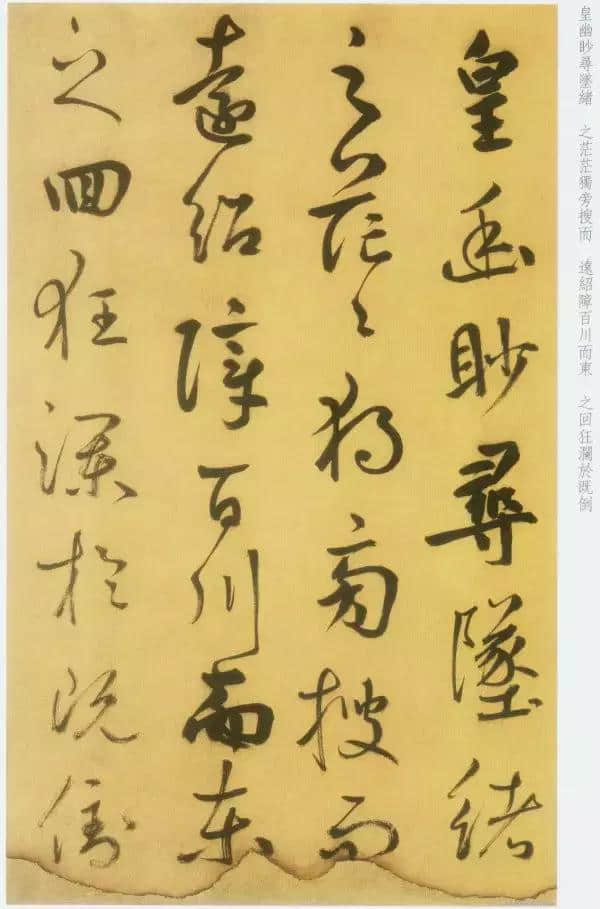 皇幽眇尋墜緒　之茫茫獨旁搜而　遠紹障百川而東　之回狂瀾於既倒
皇幽眇尋墜緒
之茫々獨旁搜而
遠紹障百川而東
之回狂瀾於既倒